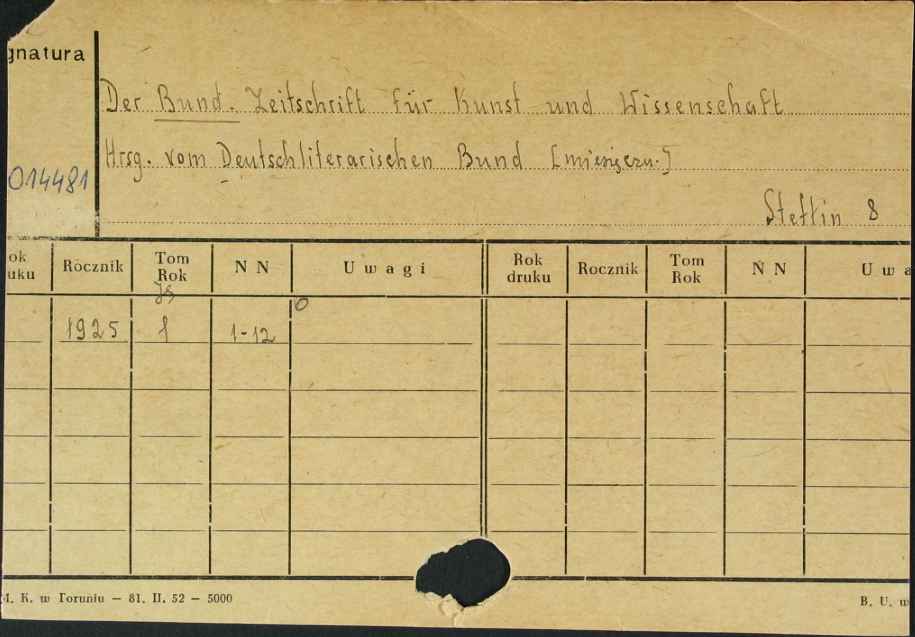 gnatura
Der Bund. Zeitschrift für Kunst und Wissenschaft
Hrsg. vom Deutschliterarischen Bund [miesięczn.]
014481
Stettin 8
ok
uku
Rocznik
Tom
Rok
N N
Uwagi
Rok
druku
Rocznik
Tom
Rok
N N
Uwa
Jg
1925 1 1-12
M. K. w Toruniu — 81. II. 52 — 5000
B. U. w